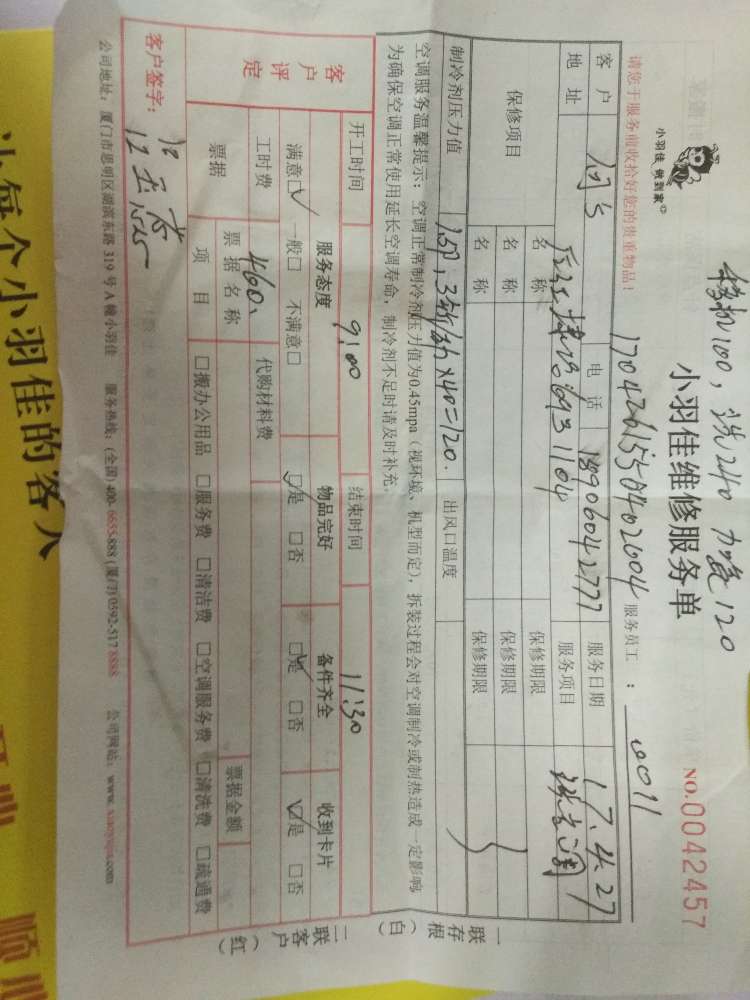 移机100，洗240 加氟120
小羽佳 做到家
小羽佳维修服务单
NO.0042457
请您于服务前收拾好您的贵重物品！
1704261550402604
服务员工：
6011
客户
电话
18906042777
服务日期
17.4.27
地址
服务项目
保修项目
名称
保修期限
名称
保修期限
名称
保修期限
制冷剂压力值
出风口温度
空调服务温馨提示：空调正常制冷剂压力值为0.45mpa（视环境、机型而定），拆装过程会对空调制冷或制热造成一定影响
为确保空调正常使用延长空调寿命，制冷剂不足时请及时补充。
一联存根（白）
二联客户（红）
开工时间
9:00
结束时间
11:30
客户评定
服务态度
物品完好
备件齐全
收到卡片
满意☑ 一般□ 不满意□
☑是 □否
☑是 □否
☑是 □否
工时费
460
代购材料费
票据
票据名称
票据金额
项目
□搬办公用品 □服务费 □清洁费 □空调服务费 □清洗费 □疏通费
客户签字：
公司地址：厦门市思明区湖滨东路319号A幢小羽佳 服务热线：(全国)400-6655-888 (厦门)0592-517 8888 公司网站：www.xiaoyujia.com
让每个小羽佳的客人